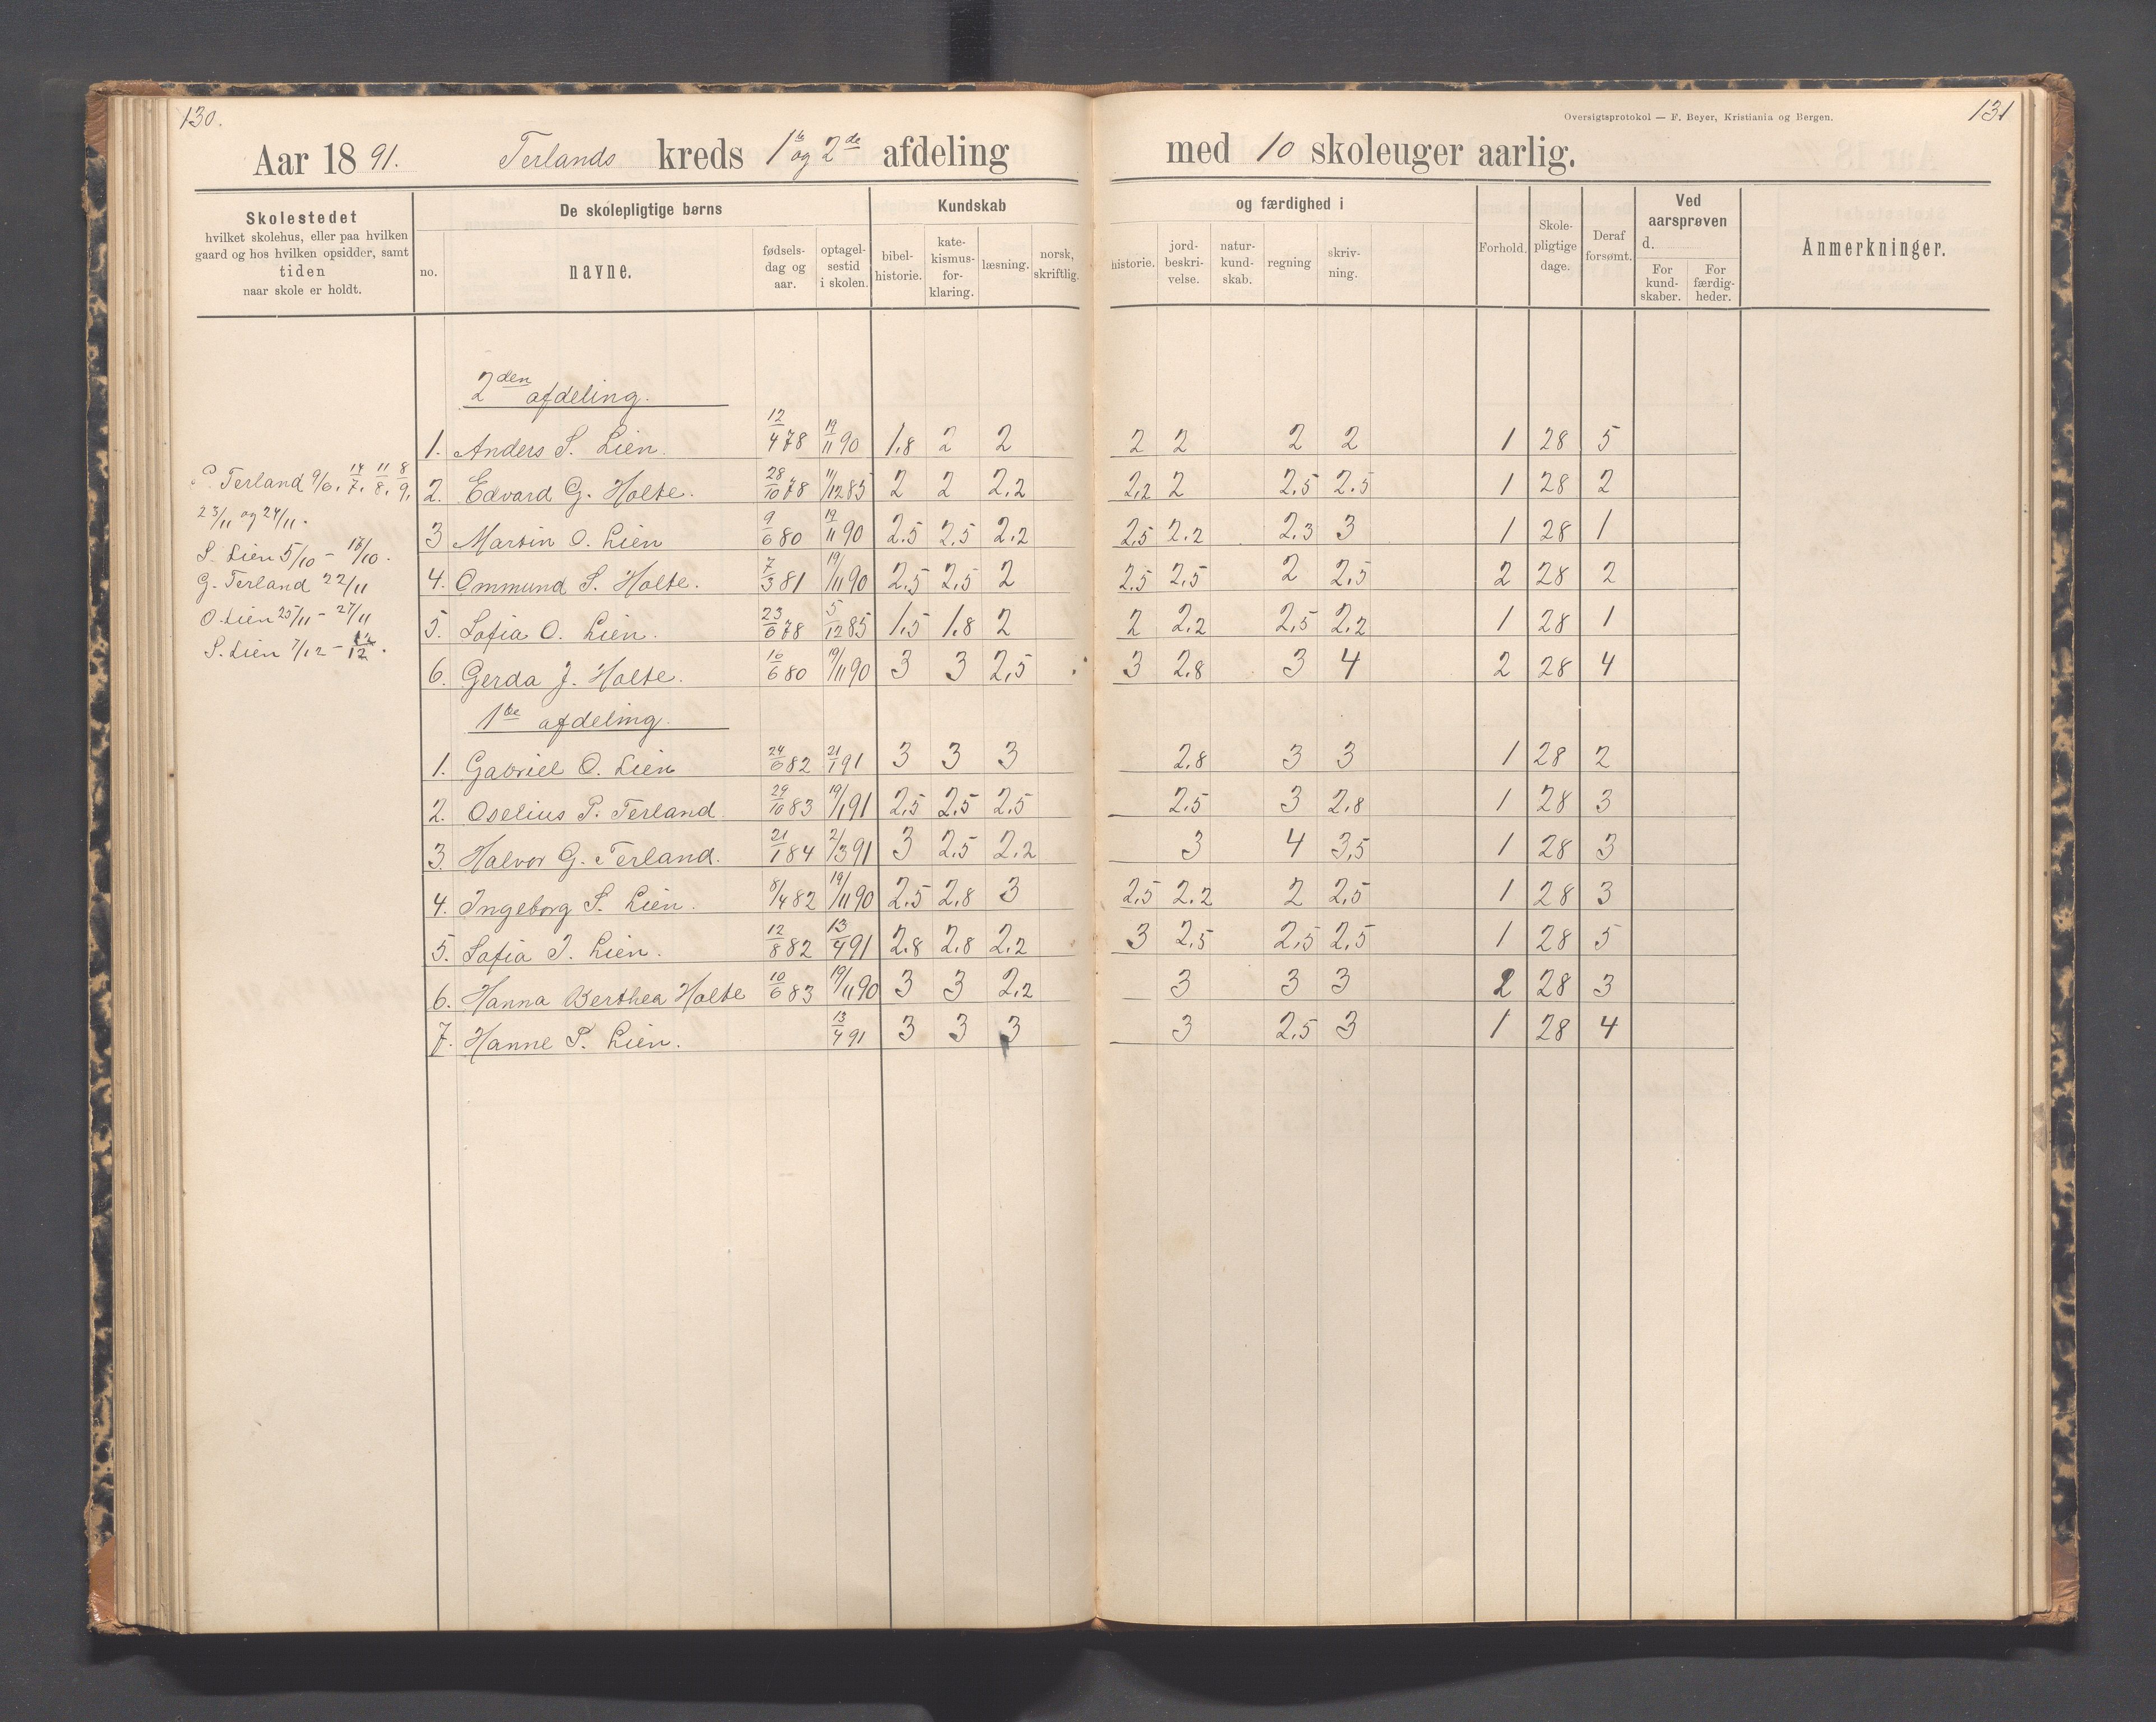 130.
131
Oversigtsprotokol — F. Beyer, Kristiania og Bergen.
Aar 1891. Terlands kreds 1ste og 2de afdeling med 10 skoleuger aarlig.
Skolestedet
hvilket skolehus, eller paa hvilken
gaard og hos hvilken opsidder, samt
tiden
naar skole er holdt.
De skolepligtige børns
no.
navne.
fødsels-
dag og
aar.
optagel-
sestid
i skolen.
Kundskab og færdighed i
bibel-
historie.
kate-
kismus-
for-
klaring.
læsning.
norsk,
skriftlig.
historie.
jord-
beskri-
velse.
natur-
kund-
skab.
regning
skriv-
ning.
Forhold.
Skole-
pligtige
dage.
Deraf
forsømt.
Ved
aarsprøven
d.
For
kund-
skaber.
For
færdig-
heder.
Anmerkninger.
P. Terland 9/6. 14/7. 11/8. 8/9.
23/11 og 24/11.
S. Lien 5/10 – 16/10.
G. Terland 22/11
O. Lien 25/11 – 27/11
S. Lien 7/12 – 12/12.
2den afdeling.
1. Anders S. Lien. 12/4 78 19/11 90 1,8 2 2 2 2 2 2 1 28 5
2. Edvard G. Holte. 28/10 78 1/12 85 2 2 2,2 2,2 2 2,5 2,5 1 28 2
3 Martin O. Lien 9/6 80 19/11 90 2,5 2,5 2,2 2,5 2,2 2,3 3 1 28 1
4. Ommund S. Holte. 7/3 81 19/11 90 2,5 2,5 2 2,5 2,5 2 2,5 2 28 2
5. Sofia O. Lien. 23/6 78 5/12 85 1,5 1,8 2 2 2,2 2,5 2,2 1 28 1
6. Gerda J. Holte. 10/6 80 19/11 90 3 3 2,5 3 2,8 3 4 2 28 4
1ste afdeling.
1. Gabriel O. Lien 24/6 82 21/1 91 3 3 3 2,8 3 3 1 28 2
2. Oselius P. Terland 29/10 83 19/1 91 2,5 2,5 2,5 2,5 3 2,8 1 28 3
3. Halvor G. Terland. 21/1 84 2/3 91 3 2,5 2,2 3 4 3,5 1 28 3
4. Ingeborg S. Lien. 8/4 82 19/11 90 2,5 2,8 3 2,5 2,2 2 2,5 1 28 3
5. Sofia J. Lien. 12/8 82 13/4 91 2,8 2,8 2,2 3 2,5 2,5 2,5 1 28 5
6. Hanna Berthea Holte 10/6 83 19/11 90 3 3 2,2 3 3 3 2 28 3
7. Hanne P. Lien. 13/4 91 3 3 3 3 2,5 3 1 28 4